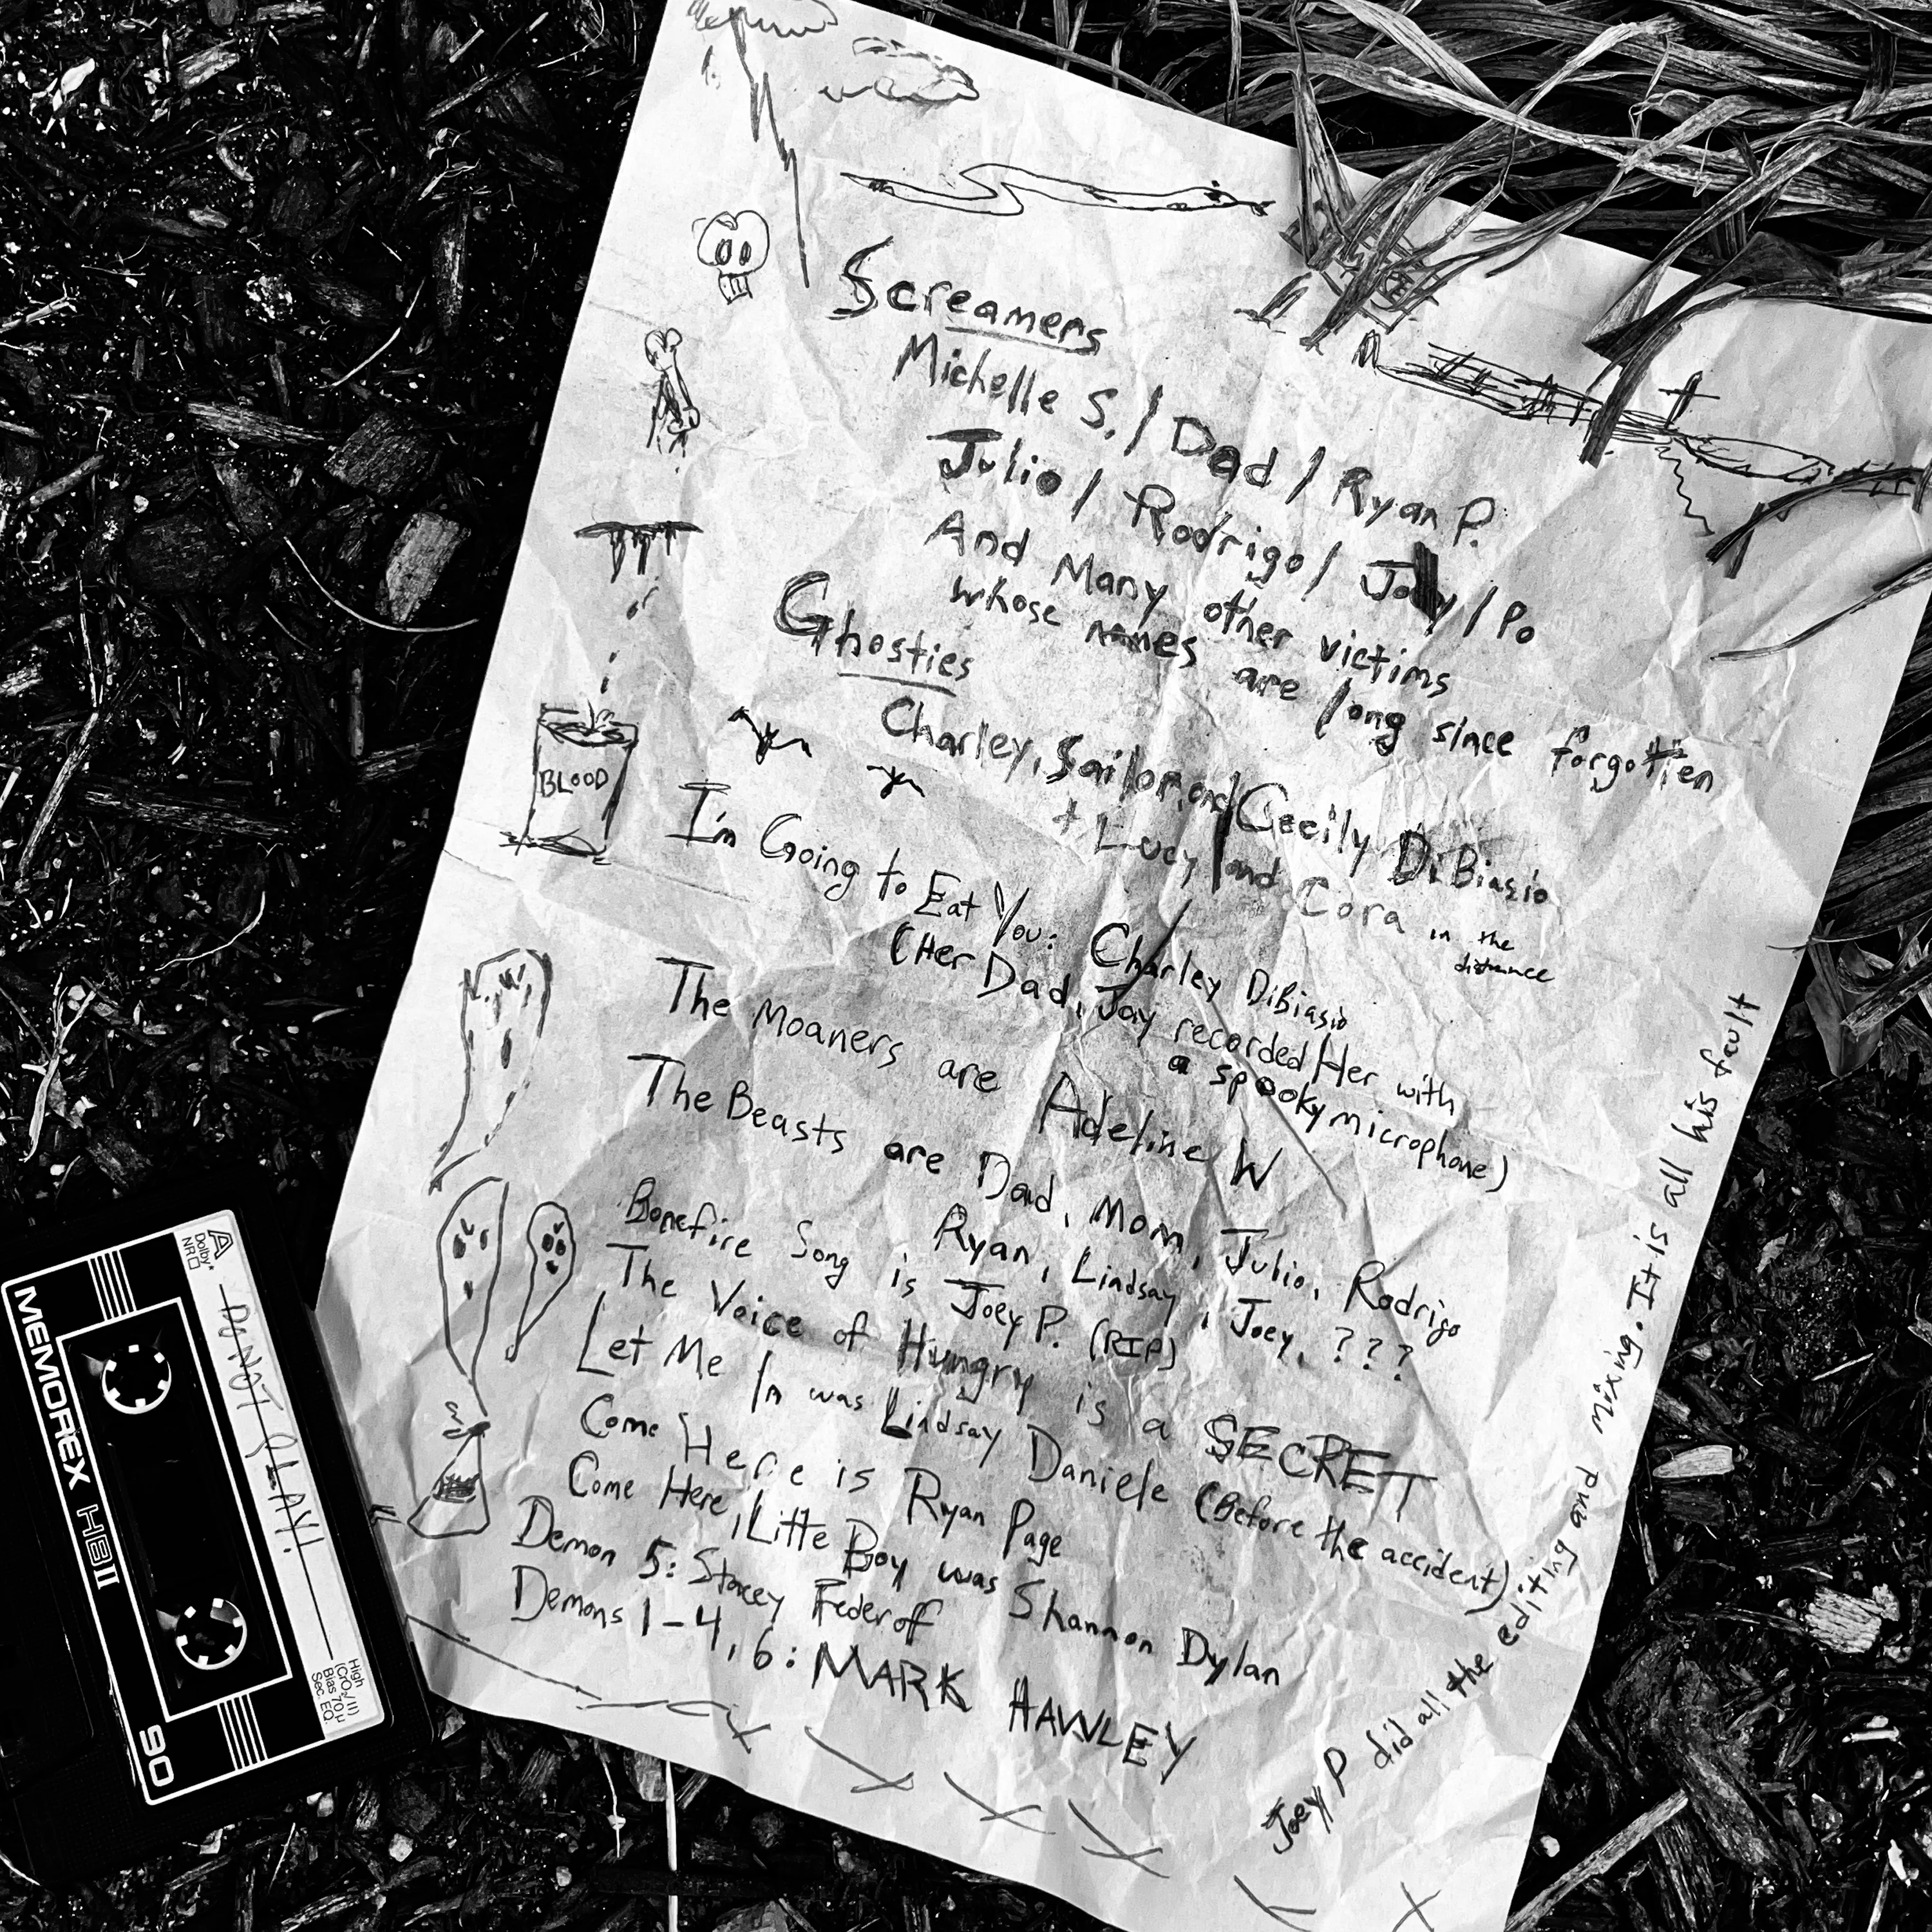 Screamers
Michelle S. / Dad / Ryan P.
Julio / Rodrigo / Joey / Po
And Many other victims
whose names are long since forgotten
Ghosties
Charley, Sailor, and Cecily DiBiasio
+ Lucy and Cora in the
distance
I'm Going to Eat You: Charley DiBiasio
(Her Dad, Jay recorded Her with
a spooky microphone)
The Moaners are Adeline W
The Beasts are Dad, Mom, Julio, Rodrigo
Ryan, Lindsay, Joey, ???
Bonefire Song is Joey P. (RIP)
The Voice of Hungry is a SECRET
Let Me In was Lindsay Daniele (Before the accident)
Come Here is Ryan Page
Come Here, Litte Boy was Shannon Dylan
Demon 5: Stacey Federoff
Demons 1-4, 6: MARK HAWLEY
Joey P did all the editing and mixing. It is all his fault
BLOOD
A
Dolby*
NR
DO NOT PLAY!
MEMOREX HBII
90
High
(CrO₂/II)
Bias 70µ
Sec. EQ.